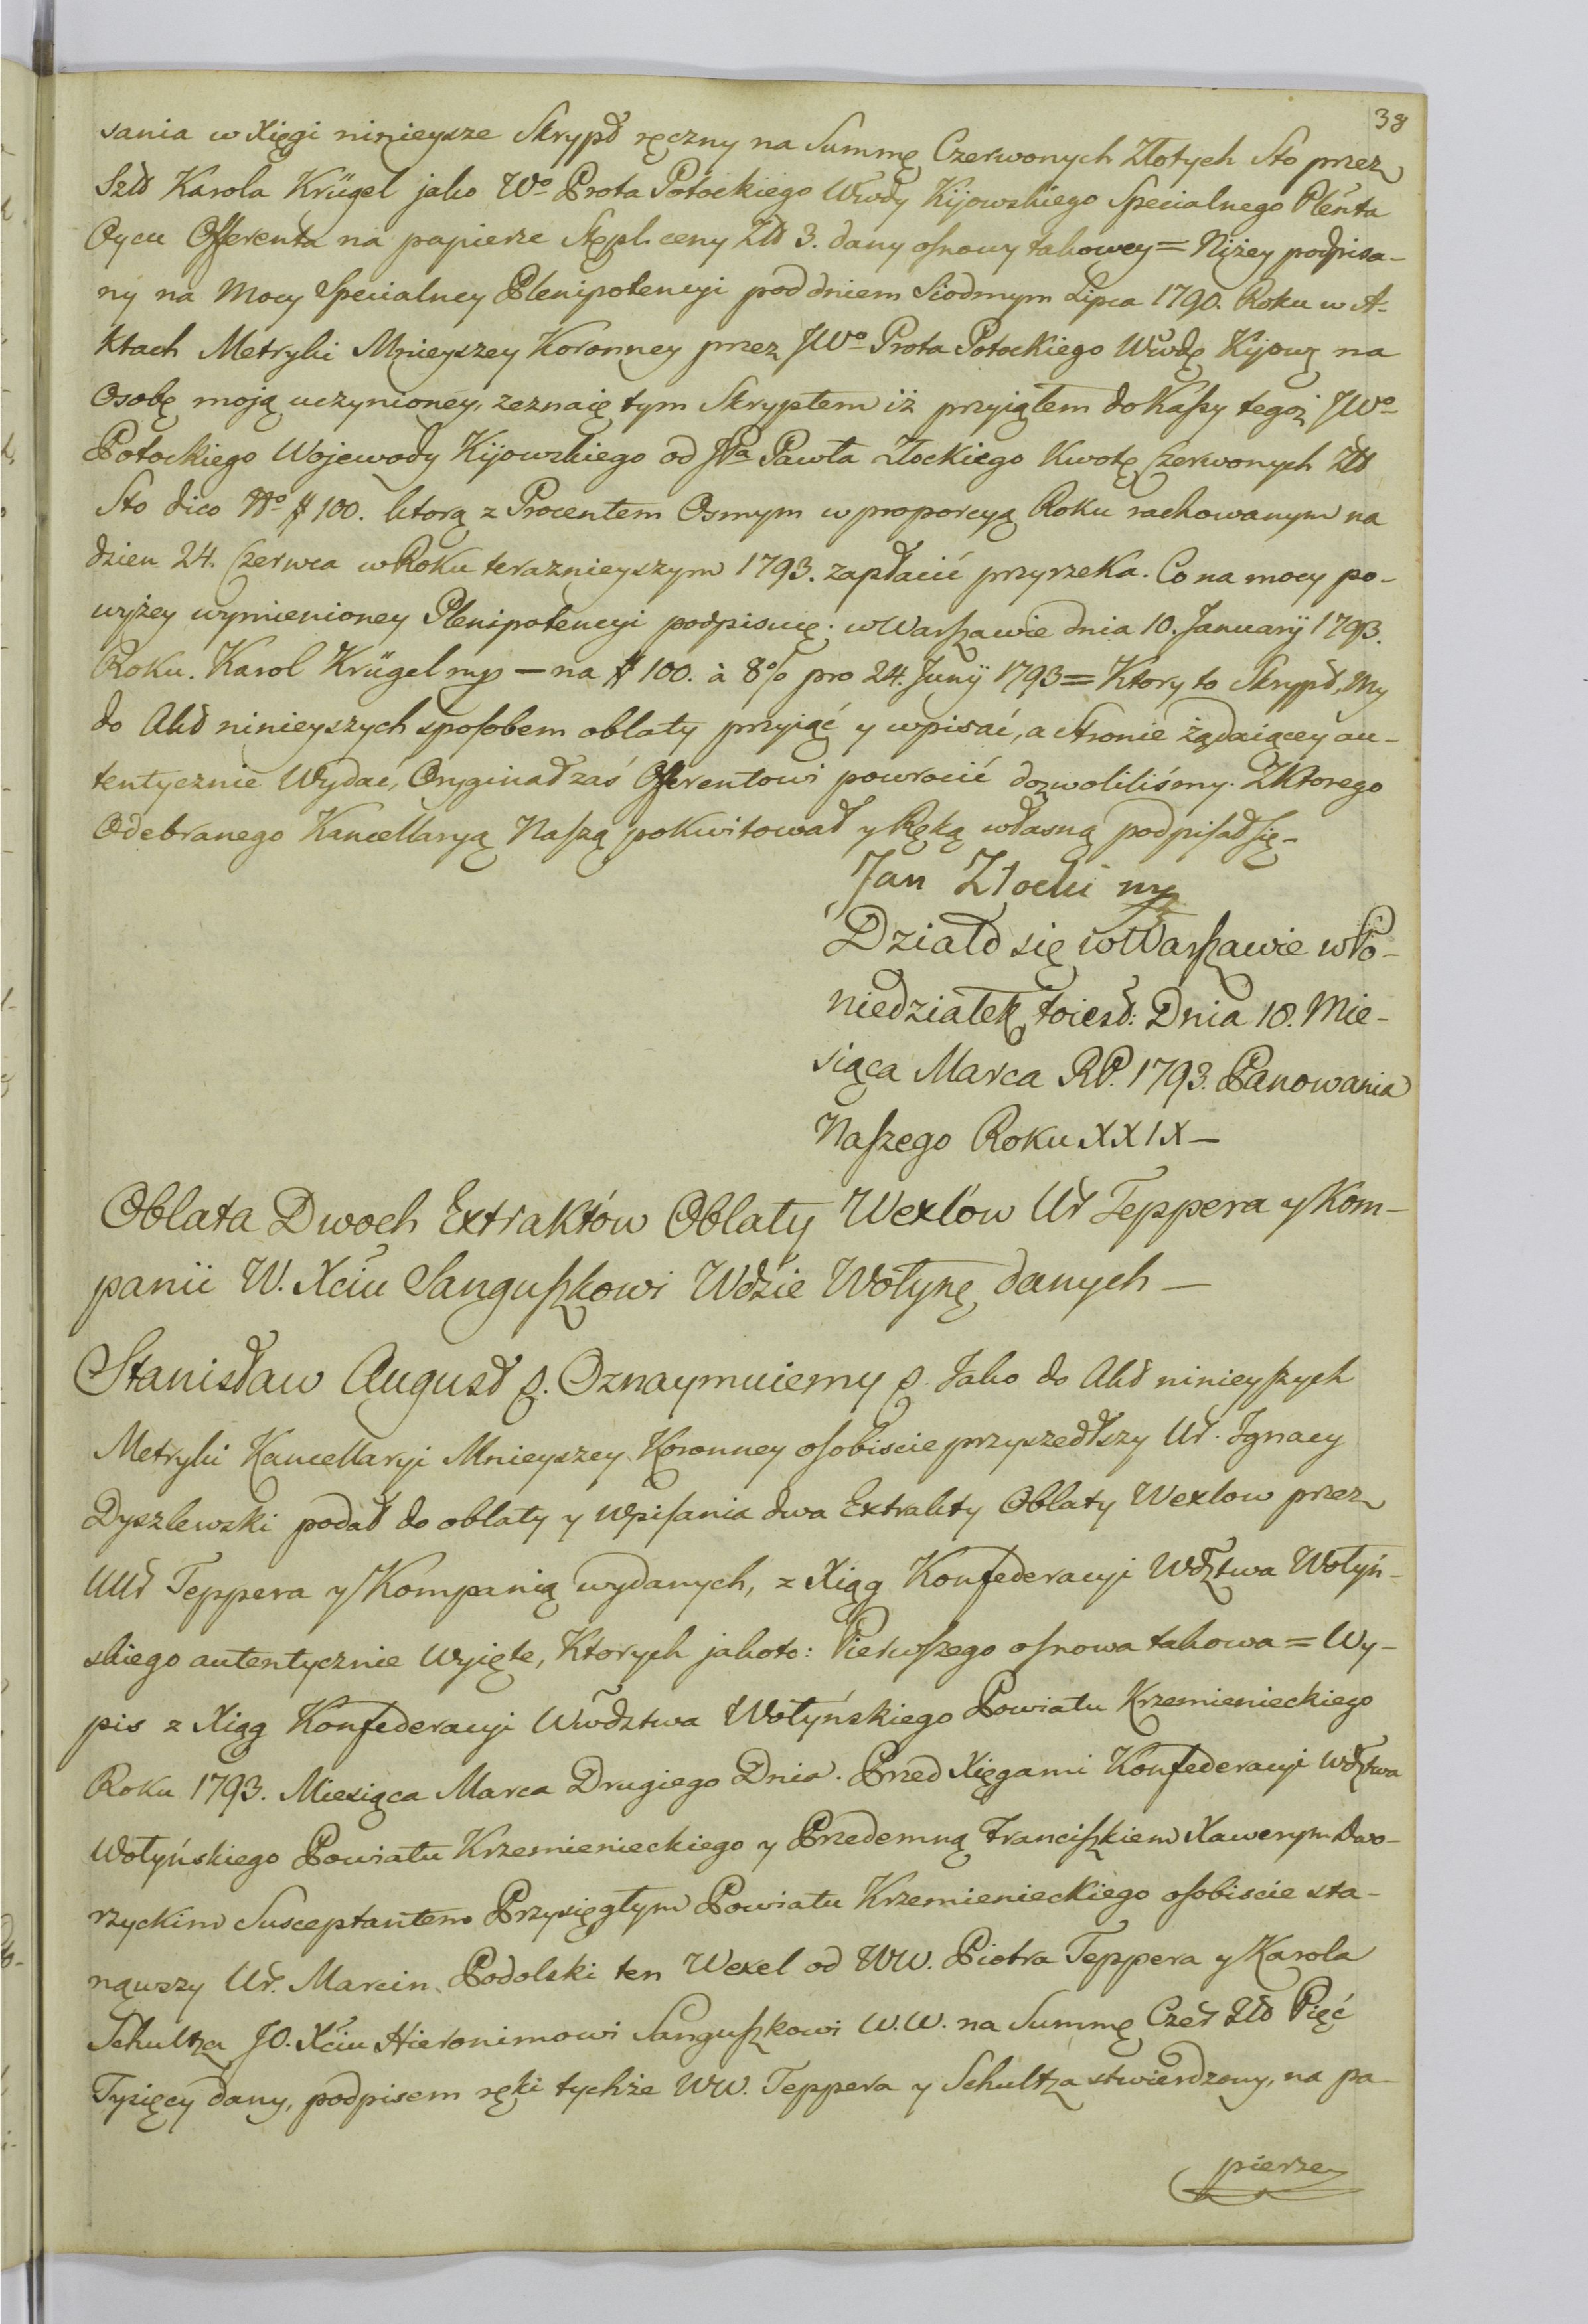 38
sania w Xięgi ninieysze Skrypt ręczny na Summę Czerwonych Złotych Sto przez
Szl Karola Krügel jako Wo Prota Potockiego Wwdy Kijowskiego Specialnego Plenta
Oycu Offerenta na papierze Stępl. ceny Zł 3. dany osnowy takowey = Niżey podpisa-
ny na Mocy Specialney Plenipotencyi pod dniem Siodmym Lipca 1790. Roku w A-
ktach Metryki Mnieyszey Koronney przez JWo Prota Potockiego Wwdę Kijowg na
Osobę moją uczynioney, zeznaię tym Skryptem iż przyiąłem do Kassy tegoż JWo
Potockiego Wojewody Kijowskiego od JPa Pawła Złockiego Kwotę Czerwonych Złł
Sto dico No # 100. ktorą z Procentem Osmym w proporcyą Roku rachowanym na
dzien 24. Czerwca w Roku teraznieyszym 1793. zapłacić przyrzeka. Co na mocy po-
wyżey wymienioney Plenipotencyi podpisuię. w Warszawie dnia 10. Januarij 1793.
Roku. Karol Krügel mp — na # 100. à 8% pro 24. Junij 1793 = Ktory to Skrypt, My
do Akt ninieyszych sposobem oblaty przyiąć y wpisać, a stronie żądaiącey au-
tentycznie Wydać, Oryginał zaś Offerentowi powrocić dozwoliliśmy. Z ktorego
Odebranego Kancellaryą Naszą pokwitował y Ręką własną podpisał się_
Jan Złocki mp
Działo się w Warszawie w Po-
niedziałek toiest: Dnia 18. Mie-
siąca Marca RP. 1793. Panowania
Naszego Roku XXIX —
Oblata Dwoch Extraktów Oblaty Wexlów Ur Teppera y Kom-
panii W. Xciu Sanguszkowi Wdzie Wołynę danych —
Stanisław August p. Oznaymuiemy p. Jako do Akt ninieyszych
Metryki Kancellaryi Mnieyszey Koronney osobiscie przyszedłszy Ur. Ignacy
Dyszlewski podał do oblaty y wpisania dwa Extrakty Oblaty Wexlow przez
UUr Teppera y Kompanią wydanych, z Xiąg Konfederacyi Wdztwa Wołyń-
skiego autentycznie Wyięte, Ktorych jakoto: Pierwszego osnowa takowa = Wy-
pis z Xiąg Konfederacyi Wwdztwa Wołyńskiego Powiatu Krzemienieckiego
Roku 1793. Miesiąca Marca Drugiego Dnia. Przed Xięgami Konfederacyi Wdztwa
Wołyńskiego Powiatu Krzemienieckiego y Przedemną Franciszkiem Xawerym Dwo-
rzyckim Susceptantem Przysięgłym Powiatu Krzemienieckiego osobiscie sta-
nąwszy Ur. Marcin Podolski ten Wexel od WW. Piotra Teppera y Karola
Schultza JO. Xciu Hieronimowi Sanguszkowi W.W. na Summę Czer Złł Pięć
Tysięcy dany, podpisem ręki tychże WW. Teppera y Schultza stwierdzony, na pa-
pierze